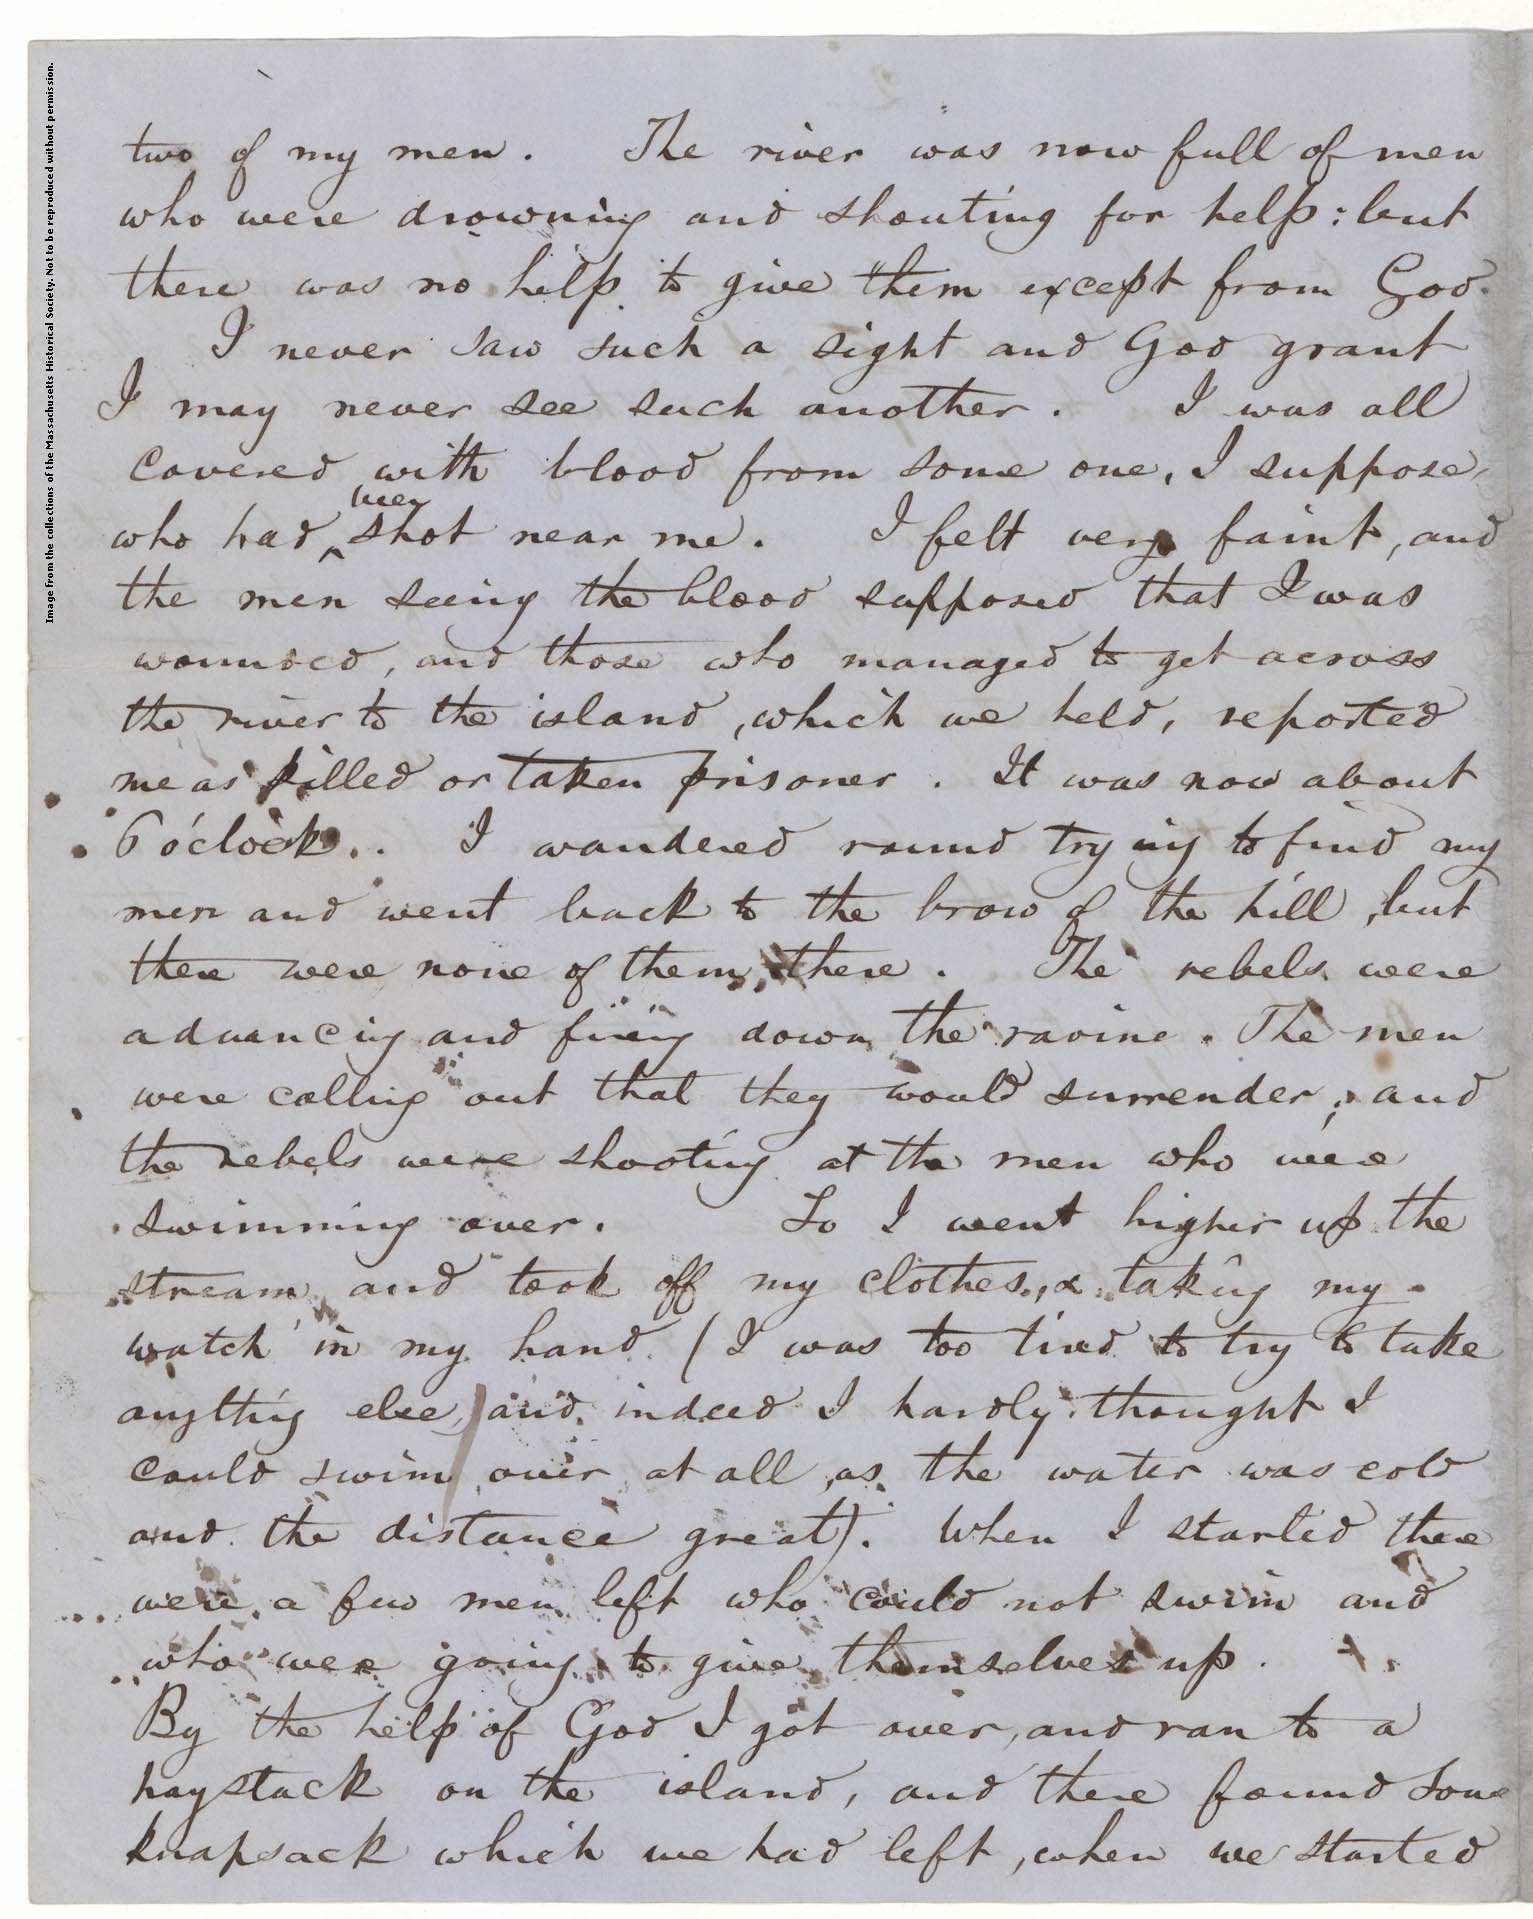 Image from the collections of the Massachusetts Historical Society. Not to be reproduced without permission.
two of my men. The river was now full of men
who were drowning and shouting for help: but
there was no help to give them except from God.
I never saw such a sight and God grant
I may never see such another. I was all
covered with blood from some one, I suppose,
who had ^been shot near me. I felt very faint, and
the men seeing the blood supposed that I was
wounded, and those who managed to get across
the river to the island, which we held, reported
me as killed or taken prisoner. It was now about
6 o'clock. I wandered round trying to find my
men and went back to the brow of the hill, but
there were none of them there. The rebels were
advancing and firing down the ravine. The men
were calling out that they would surrender; and
the rebels were shooting at the men who were
swimming over. So I went higher up the
stream and took off my clothes, & taking my
watch in my hand (I was too tired to try to take
anything else, and indeed I hardly thought I
could swim over at all, as the water was cold
and the distance great). When I started there
were a few men left who could not swim and
who were going to give themselves up.
By the help of God I got over, and ran to a
haystack on the island, and there found some
knapsack which we had left, when we started